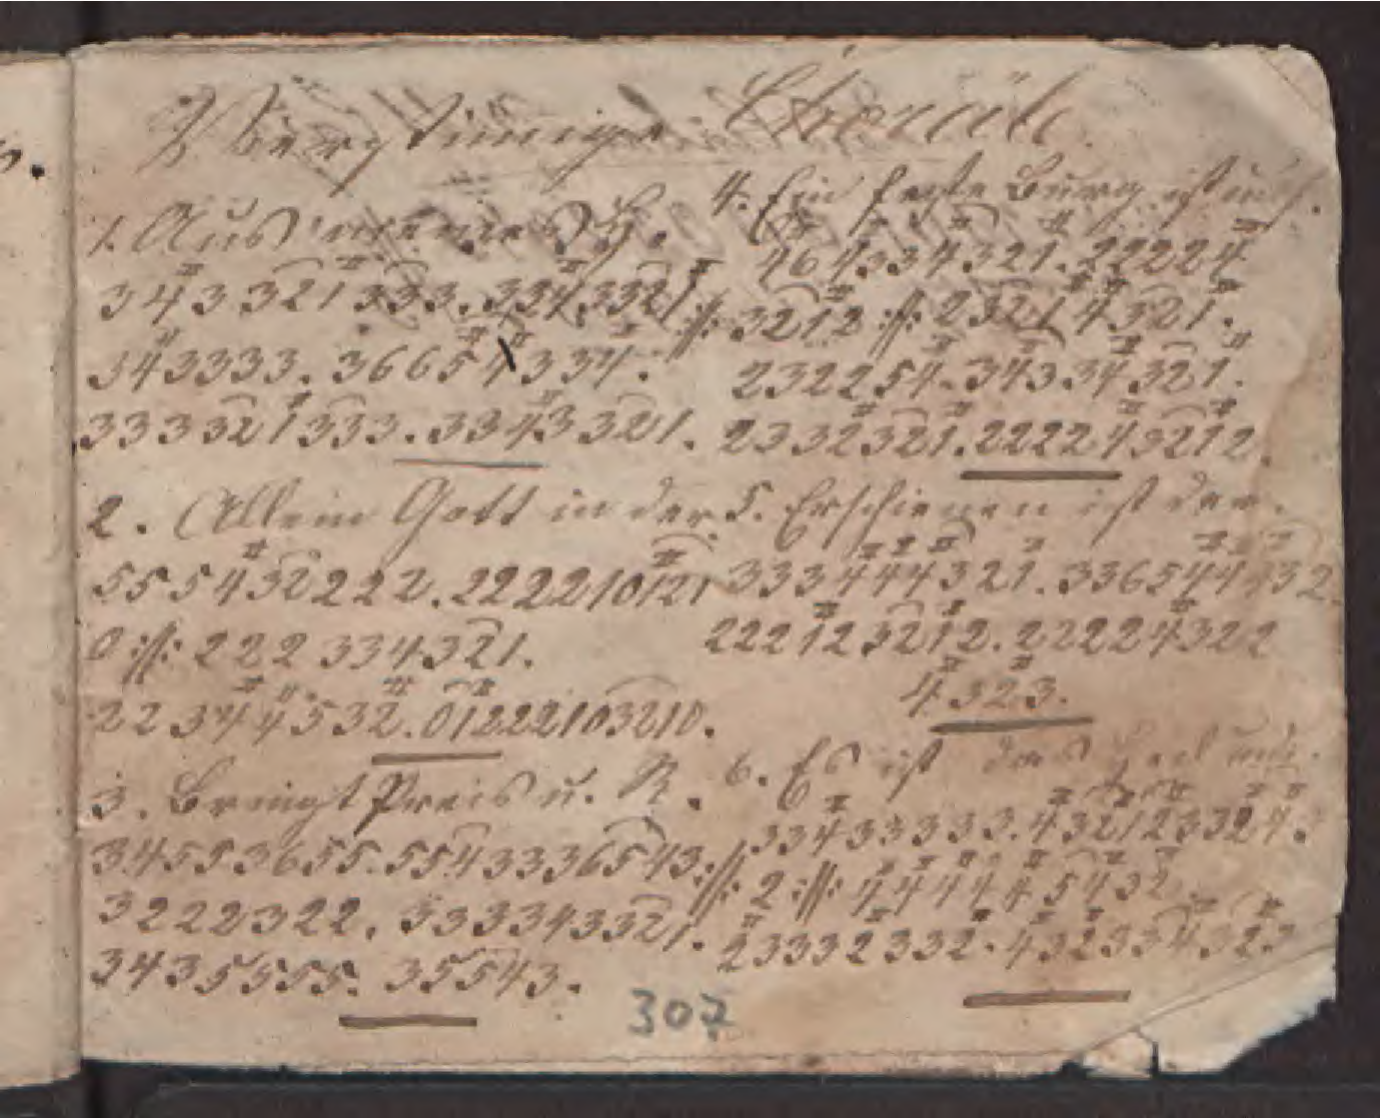 Vierstimmige Choräle.
1. Aus meines H.
343 321 333. 33433321
343333. 366543334.
333321333. 3343321.
2. Allein Gott in der.
5554322222. 2222210121
0 :||: 222 334321.
22344532. 01222103210.
3. Bringt Preis u. R.
345536555. 55433336543:||:
3222322. 333343321.
3435555. 35543.
4. Ein feste Burg ist uns.
464334321. 222224
:||: 3212 :||: 23214321.
232254. 343343321.
2332321. 2222432 12.
5. Erschienen ist der.
333444321. 336544432.
22212 3212. 222224322
4323.
6. Es ist das Heil uns.
33433333. 43212332 43
:||: 2 :||: 4444 45432
23332332. 43233 4323
307